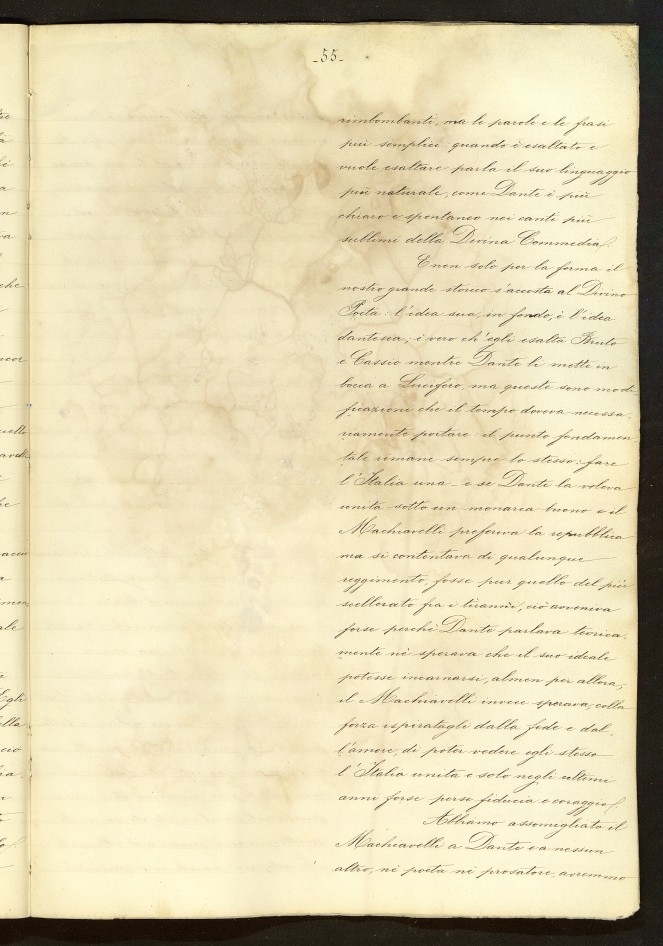 -55-
rimbombanti, ma le parole e le frasi
più semplici quando è esaltato e
vuole esaltare parla il suo linguaggio
più naturale, come Dante è più
chiaro e spontaneo nei canti più
sublimi della Divina Commedia.
E non solo per la forma il
nostro grande storico s'accosta al Divino
Poeta: l'idea sua, in fondo, è l'idea
dantesca; è vero ch'egli esalta Bruto
e Cassio mentre Dante li mette in
bocca a Lucifero, ma queste sono modi
ficazioni che il tempo doveva necessa.
riamente portare il punto fondamen
tale rimane sempre lo stesso: fare
l'Italia una - e se Dante la voleva
unita sotto un monarca buono e il
Machiavelli preferiva la repubblica
ma si contentava di qualunque
reggimento, fosse pur quello del più
scellerato fra i tiranni, ciò avveniva
forse perchè Dante parlava teorica.
mente nè sperava che il suo ideale
potesse incarnarsi, almen per allora,
il Machiavelli invece sperava, colla
forza ispiratagli dalla fede e dal.
l'amore, di poter vedere egli stesso
l'Italia unita e solo negli ultimi
anni forse perse fiducia e coraggio.
Abbiamo assomigliato il
Machiavelli a Dante e a nessun
altro, nè poeta nè prosatore, avremmo